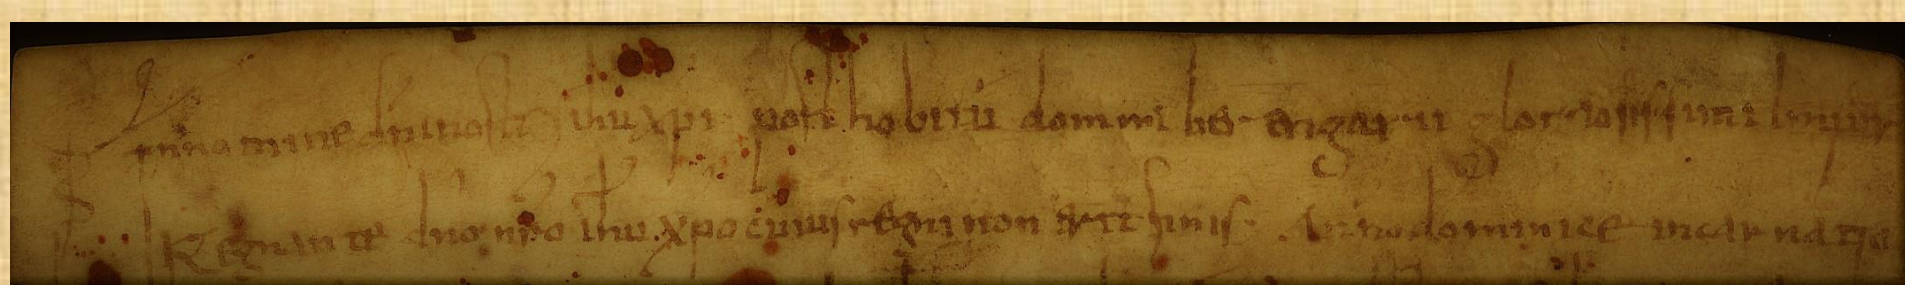 In nomine dni nostri ihu xpi post hobitũ domini berengarii gloriosissimi
Regnante dno nro ihu xpo cuius regni non erit finis. Anno dominice incarnatio